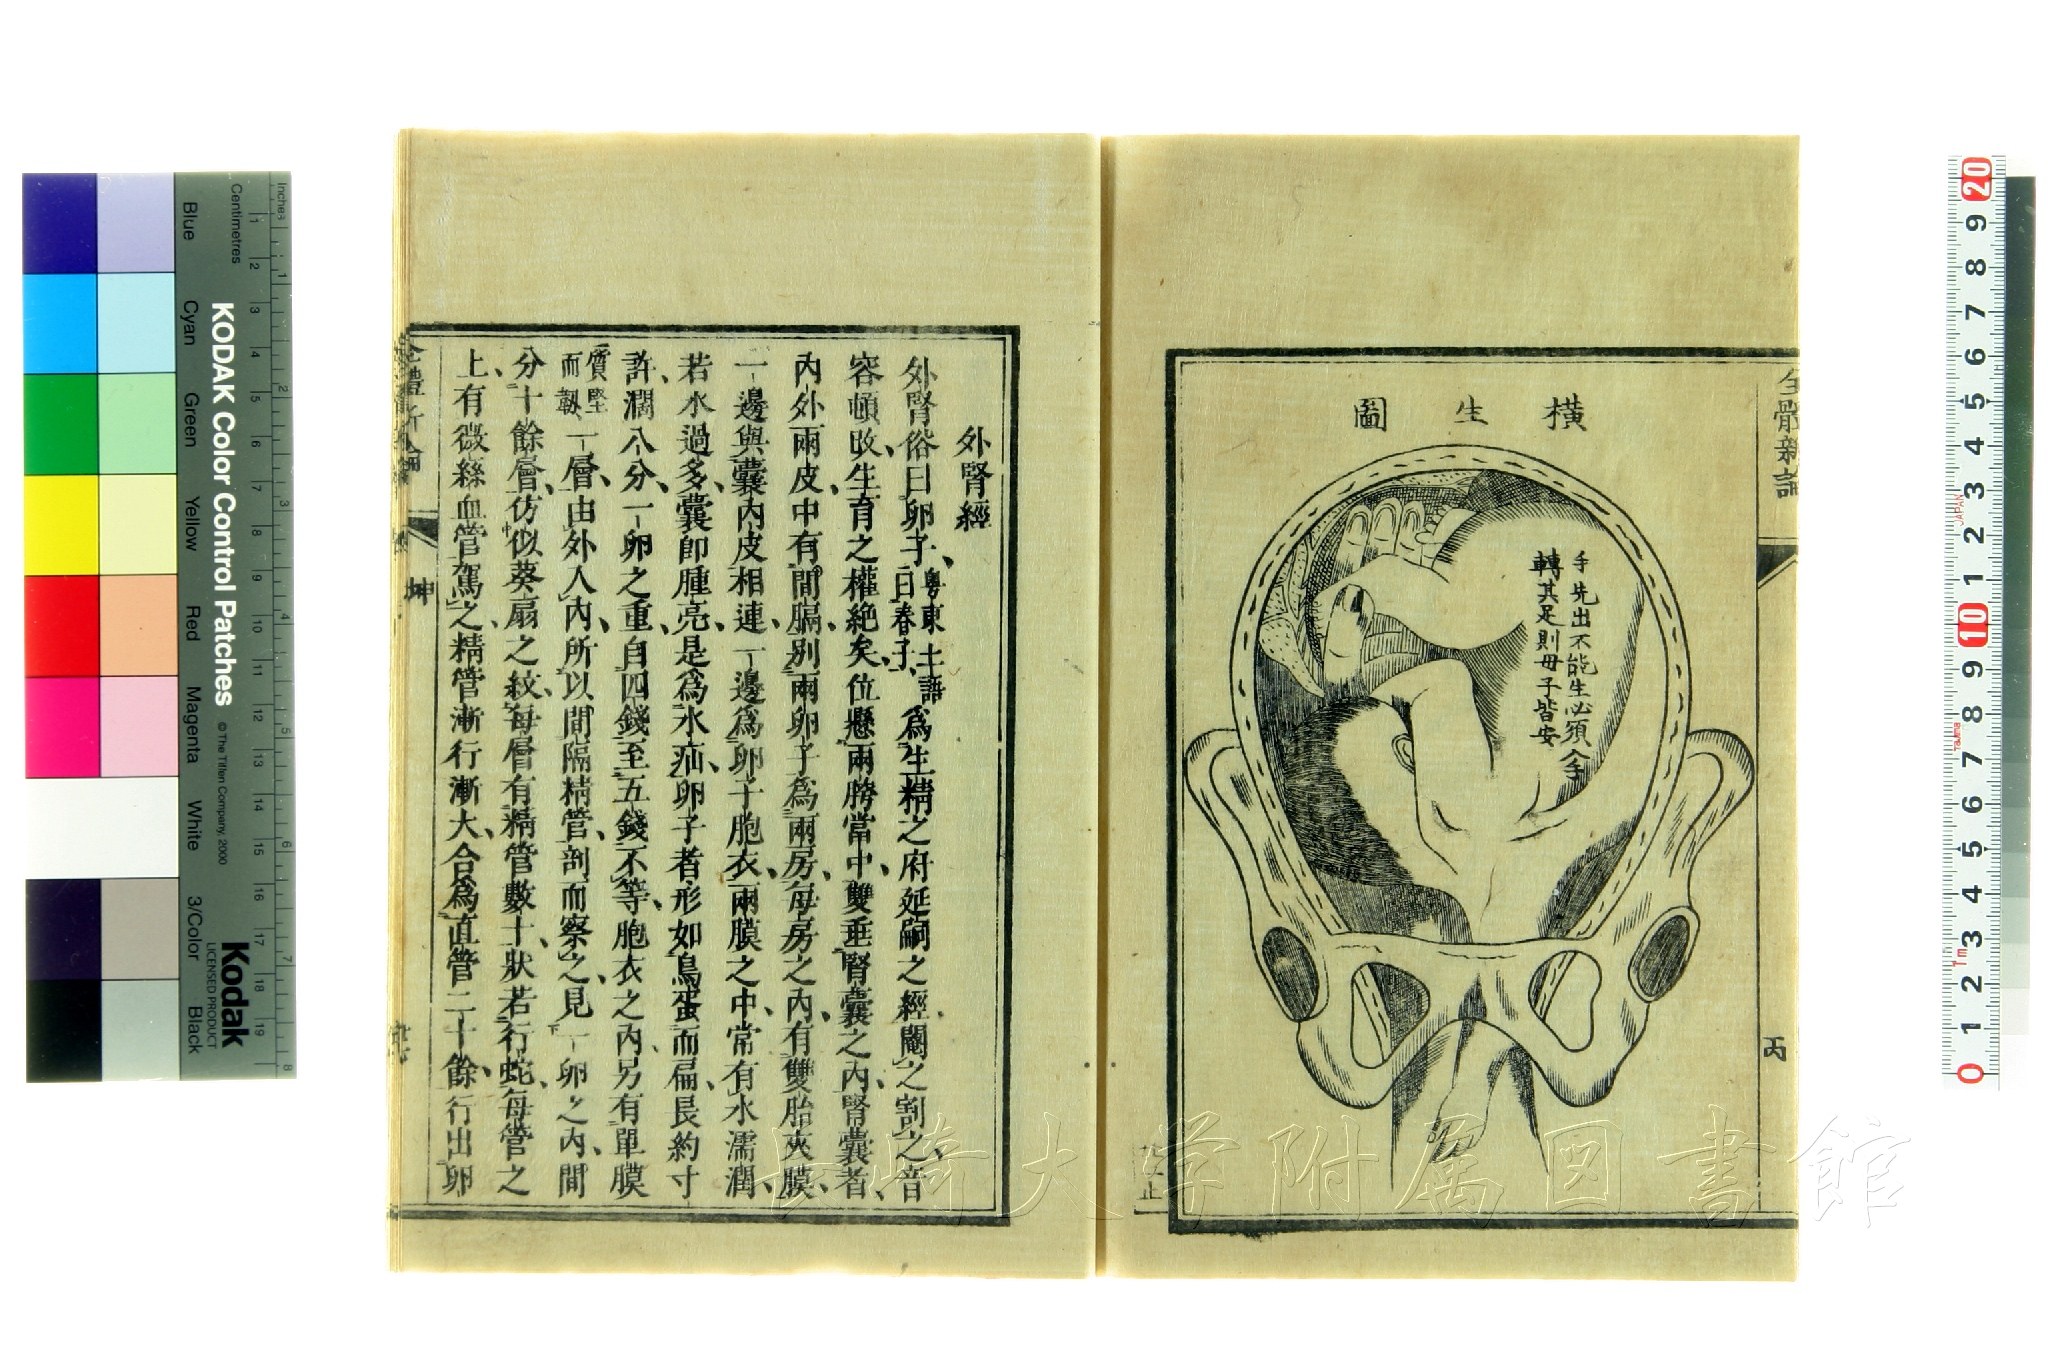 橫生圖
手先出不能生必須人手
轉其足則母子皆安
全體新論
丙
外腎經
外腎俗曰卵子、粵東土語曰春子、為生精之府延嗣之經閹之割之音
容頓改、生育之權絕矣、位懸兩胯當中、雙垂腎囊之內、腎囊者、
內外兩皮、中有間膈、別兩卵子為兩房、每房之內、有雙胎夾膜、
一邊與囊內皮相連、一邊為卵子胞衣、兩膜之中、常有水濡潤、
若水過多、囊即腫亮、是為水疝、卵子者、形如鳥蛋而扁、長約寸
許、濶八分、一卵之重、自四錢至五錢不等、胞衣之內、另有單膜
質堅而韌、一層、由外入內、所以間隔精管、剖而察之、見一卵之內、間
分十餘層、仿似葵扇之紋、每層有精管數十、狀若行蛇、每管之
上、有微絲血管駕之、精管漸行漸大、合為直管二十餘、行出卵
坤
長崎大学附属図書館
KODAK Color Control Patches
© The Tiffen Company, 2000
Kodak
LICENSED PRODUCT
Inches
Centimetres
1 2 3 4 5 6 7 8 9 10 11 12 13 14 15 16 17 18 19
1 2 3 4 5 6 7 8
Blue
Cyan
Green
Yellow
Red
Magenta
White
3/Color
Black
20 9 8 7 6 5 4 3 2 1 10 9 8 7 6 5 4 3 2 1 0
JAPAN